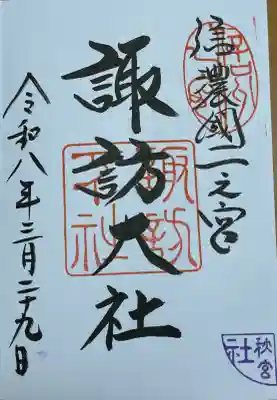 信濃國一之宮
諏訪大社
諏訪大社
令和八年三月二十九日
秋宮
社